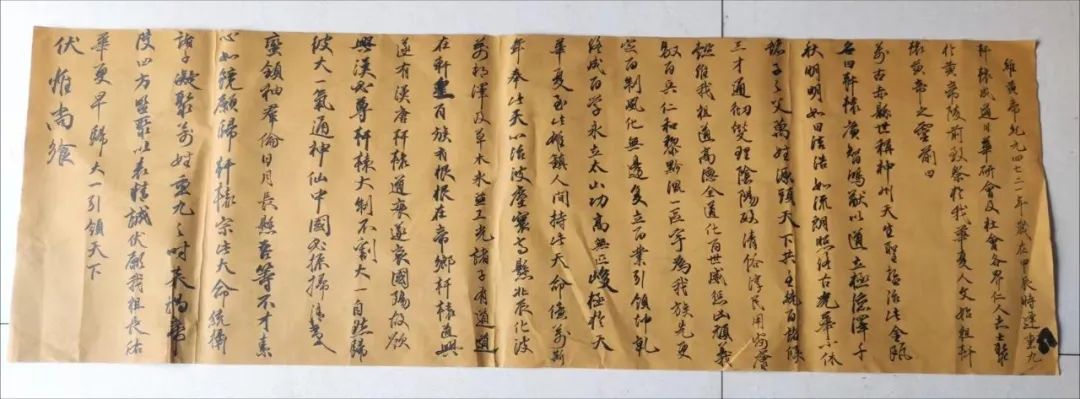 維黃帝紀元四七二一年歲在甲辰時運重九
軒轅氏道日華研會及社會各界仁人志士聚
於黃帝陵前致祭於我華夏人文始祖軒
轅黃帝之靈前曰
萬古赤縣世稱神州天生聖祖治此金甌
名曰軒轅廣智鴻猷以道立極德澤千
秋明明如日浩浩如流朗照浩古光華不休
諸子之父萬姓源頭天下共主統百諸侯
三才通徹燮理陰陽
清俗淳民用安康
懿維我祖道高德全道化百世威懲凶頑義
馭百兵仁和黎黔混一區宇為我族先更
定百制風化無邊复立百業引領坤乾
經成百學永立太山功高無上峻極於天
華夏至此雄鎮人間持此天命億萬斯
年奉此天以治波塵寰七懸北辰化波
萬邦澤及草木永並三光諸子有道道
在軒
百族有根根在帝鄉軒轅道興
遂有漢唐軒轅道衰遂衰國陽故欲
興漢必尊軒轅大制不割大一自然歸
彼大一氣通神仙中國必振掃清
蠻鎮袖群倫日月長懸吾等不才素
心如鏡願歸軒轅宗此天命統衛
諸子凝聚萬姓重九之時來揚帝
陵四方
聚以表精誠伏願我祖長佑
華夏早歸大一引領天下
伏惟尚饗